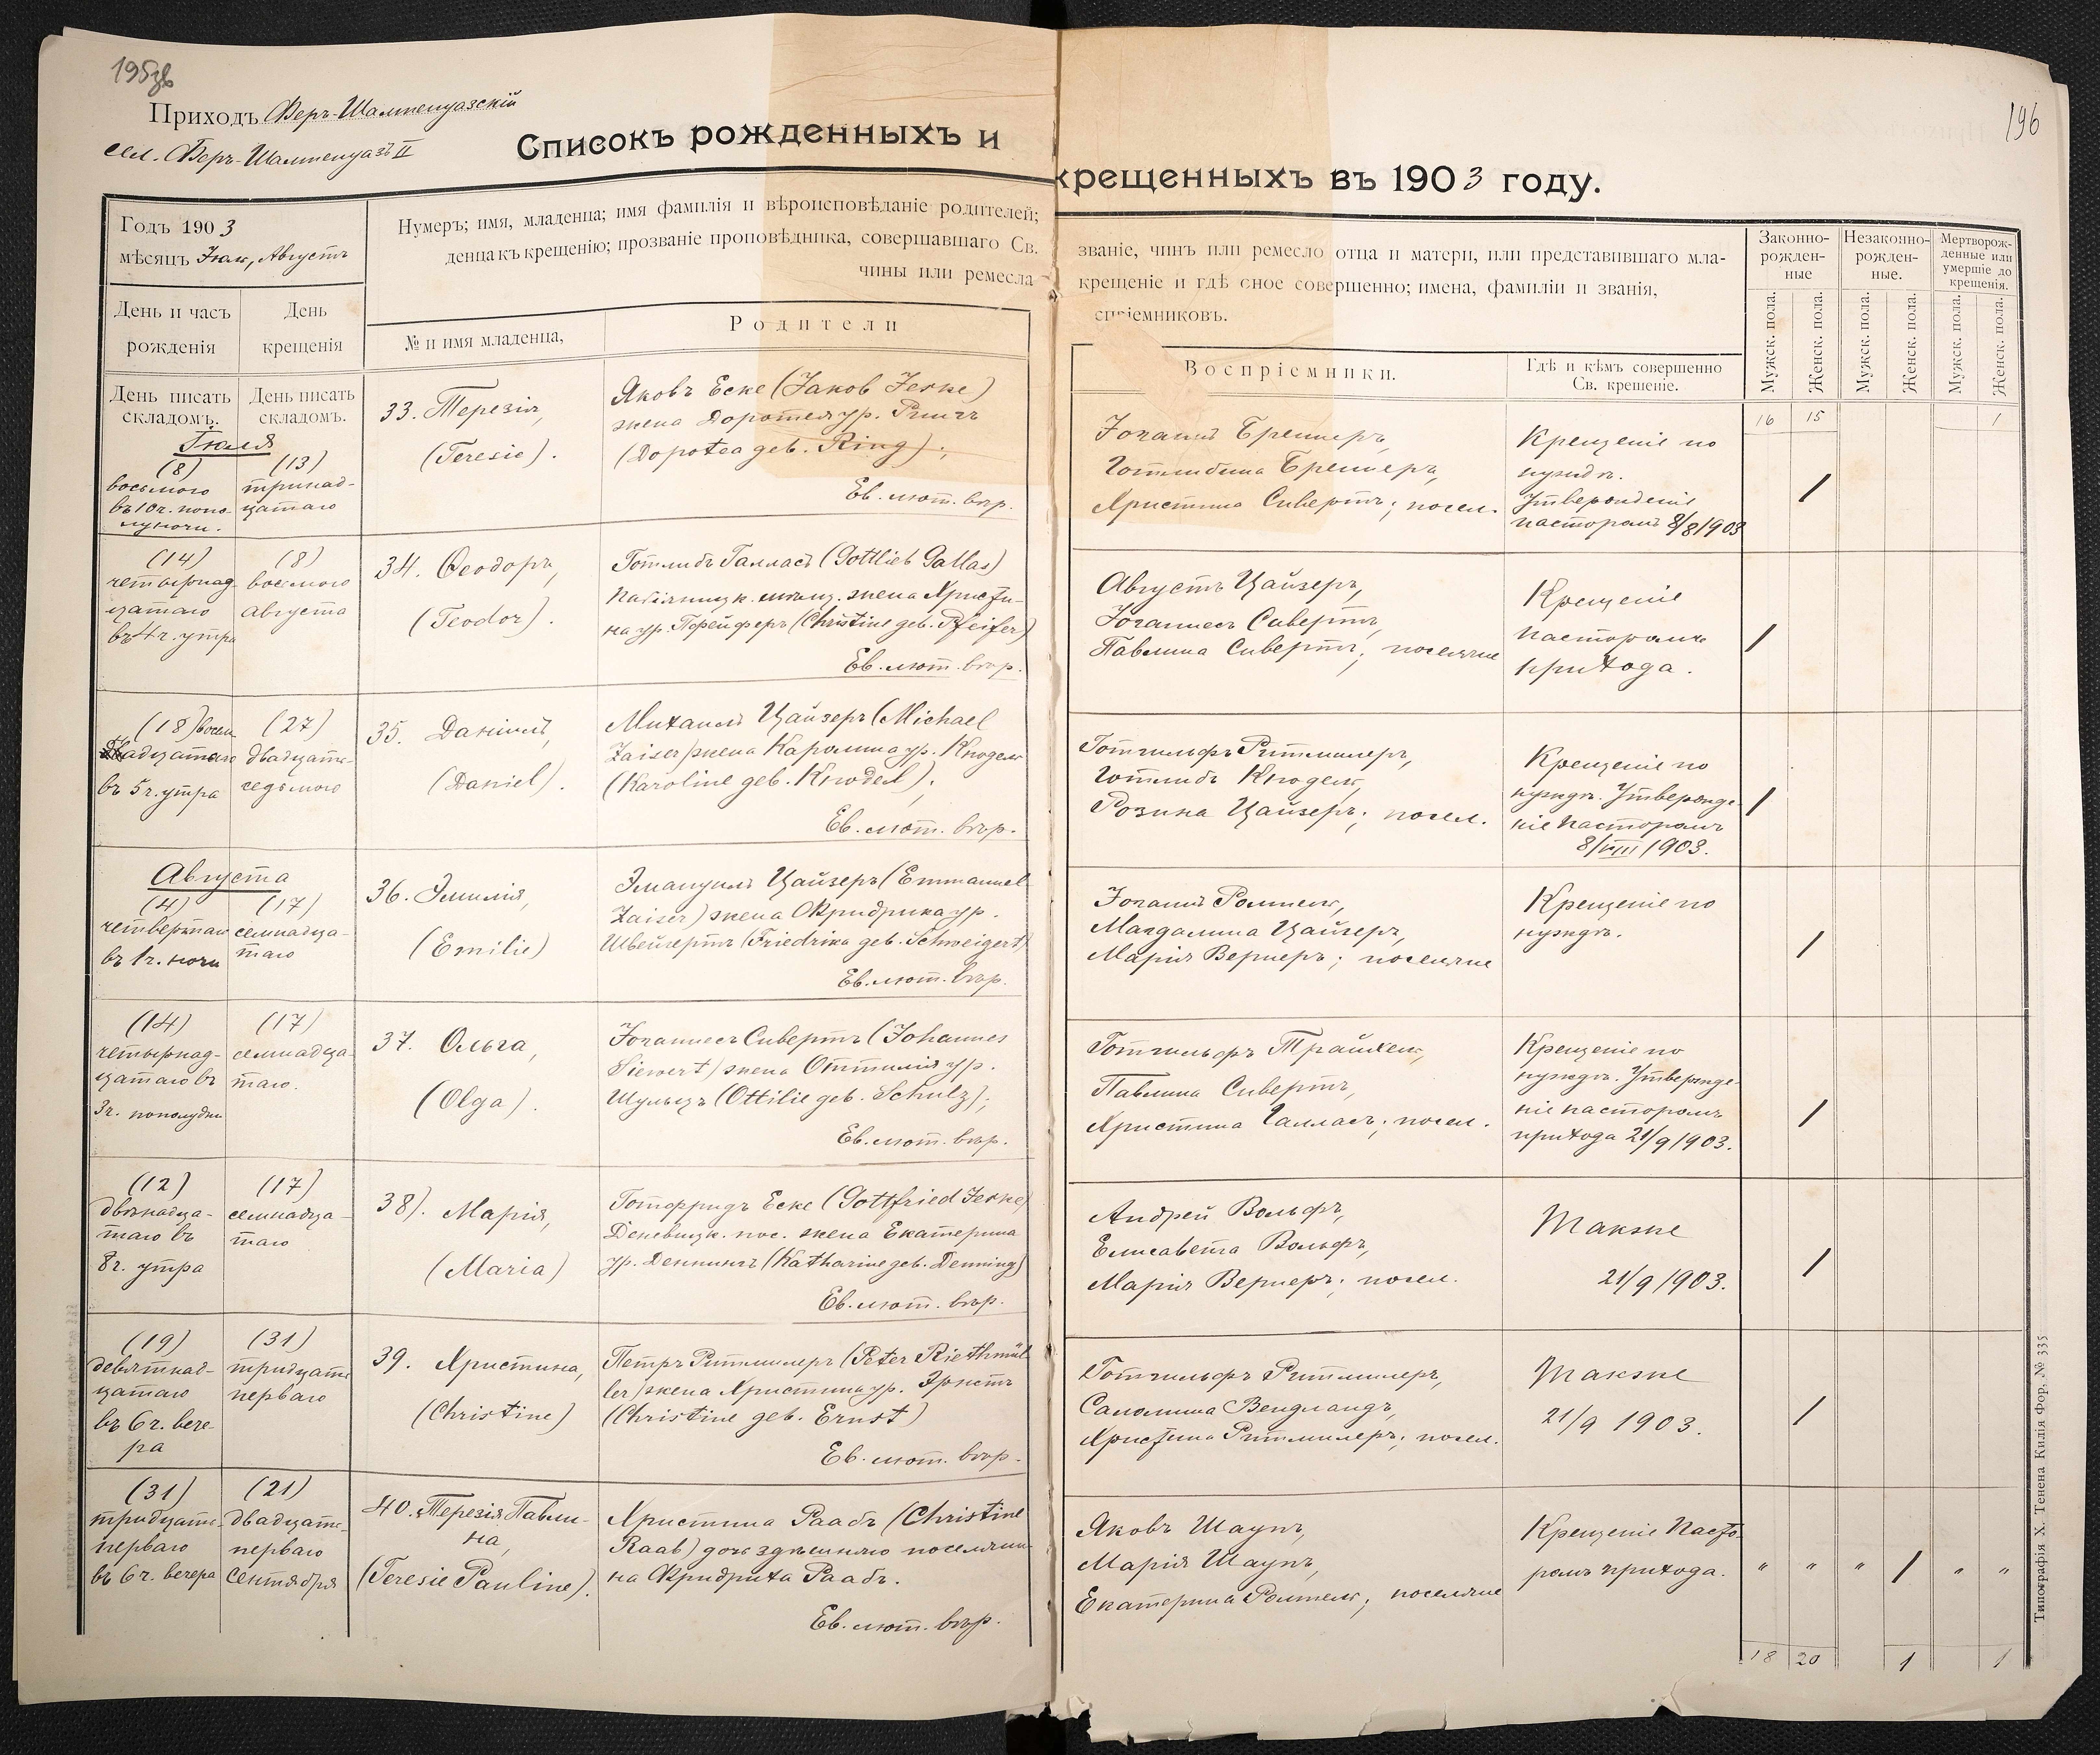 195зв
196
Приходъ Феръ-Шампенуазскій
сел. Феръ-Шампенуазъ II
Списокъ рожденныхъ и
крещенныхъ въ 1903 году.
Годъ 1903
мѣсяцъ Іюль, Августъ
Нумеръ; имя, младенца; имя фамилія и вѣроисповѣданіе родителей;
денца къ крещенію; прозваніе проповѣдника, совершавшаго Св.
чины или ремесла
званіе, чинъ или ремесло отца и матери, или представившаго мла-
крещеніе и гдѣ оное совершенно; имена, фамиліи и званія,
спріемниковъ.
День и часъ
рожденія
День
крещенія
№ и имя младенца,
Родители
Воспріемники.
Гдѣ и кѣмъ совершенно
Св. крешеніе.
Законно-
рожден-
ные
Незаконно-
рожден-
ные.
Мертворож-
денные или
умершіе до
крещенія.
Мужск. пола.
Женск. пола.
Мужск. пола.
Женск. пола.
Мужск. пола.
Женск. пола.
День писать
складомъ.
День писать
складомъ.
16 15 1
Іюля
(8)
восьмого
въ 10ч. попо-
луночи.
(13)
тринад-
цатаго
33. Терезія,
(Teresie).
Яковъ Еске (Jakob Jeske)
жена Доротея ур. Рингъ
(Dorotea geb. Ring);
Ев. лют. вѣр.
Іоганнъ Бреннеръ,
Готлибина Бреннеръ,
Христина Сивертъ; посел.
Крещеніе по
нуждѣ.
Утвержденіе
пасторомъ 8/8 1903
/
(14)
четырнад-
цатаго
въ 4ч. утра
(8)
восьмого
августа
34. Ѳеодоръ,
(Teodor).
Готлибъ Галласъ (Gottlieb Gallas)
Пабіяницк. мѣщ. жена Христи-
на ур. Пфейферъ (Christine geb. Pfeifer)
Ев. лют. вѣр.
Августъ Цайзеръ,
Іоганнесъ Сивертъ,
Павлина Сивертъ; поселяне
Крещеніе
пасторомъ
прихода.
/
(18) восем
надцатаго
въ 5ч. утра
(27)
двадцать
седьмого
35. Даніилъ,
(Daniel).
Михаилъ Цайзеръ (Michael
Zaiser) жена Каролина ур. Кнодель
(Karoline geb. Knodel);
Ев. лют. вѣр.
Готгильфъ Ритмиллеръ,
Готлибъ Кнодель,
Розина Цайзеръ; посел.
Крещеніе по
нуждѣ. Утвержде-
ніе пасторомъ
8/VIII 1903.
/
Августа
(4)
четвертаго
въ 1ч. ночи
(17)
семнадца-
таго
36. Эмилія,
(Emilie)
Эмануилъ Цайзеръ (Emmanuel
Zaiser) жена Фридрика ур.
Швейгертъ (Friedrika geb. Schweigert)
Ев. лют. вѣр.
Іоганнъ Роммель,
Магдалина Цайзеръ,
Марія Вернеръ; поселяне
Крещеніе по
нуждѣ.
/
(14)
четырнад-
цатаго въ
3ч. пополудни
(17)
семнадца-
таго.
37. Ольга,
(Olga).
Іоганнесъ Сивертъ (Johannes
Siewert) жена Оттилія ур.
Шульцъ (Ottilie geb. Schulz);
Ев. лют. вѣр.
Готгильфъ Трайхель,
Павлина Сивертъ,
Христина Галласъ; посел.
Крещеніе по
нуждѣ. Утвержде-
ніе пасторомъ
прихода 21/9 1903.
/
(12)
двѣнадца-
таго въ
8ч. утра
(17)
семнадца-
таго
38). Марія,
(Maria)
Готфридъ Еске (Gottfried Jeske)
Деневицк. пос. жена Екатерина
ур. Деннингъ (Katharine geb. Denning)
Ев. лют. вѣр.
Андрей Вольфъ,
Елисавета Вольфъ,
Марія Вернеръ; посел.
Также
21/9 1903.
/
(19)
девятнад-
цатаго
въ 6ч. вече-
ра
(31)
тридцать
перваго
39. Христина,
(Christine)
Петръ Ритмиллеръ (Peter Riethmül-
ler) жена Христина ур. Эрнстъ
(Christine geb. Ernst)
Ев. лют. вѣр.
Готгильфъ Ритмиллеръ,
Саломина Вендландъ,
Христина Ритмиллеръ; посел.
Также
21/9 1903.
/
(31)
тридцать
перваго
въ 6ч. вечера
(21)
двадцать
перваго
Сентября
40. Терезія Павли-
на,
(Teresie Pauline).
Христина Раабъ (Christine
Raab) дочь здѣшняго поселяни-
на Фридриха Раабъ.
Ев. лют. вѣр.
Яковъ Шаупъ,
Марія Шаупъ,
Екатерина Роммель; поселяне
Крещеніе Пасто-
ромъ прихода.
" " " / " "
18 20 1 1
Типографія Х. Тенена Килія Фор. № 335